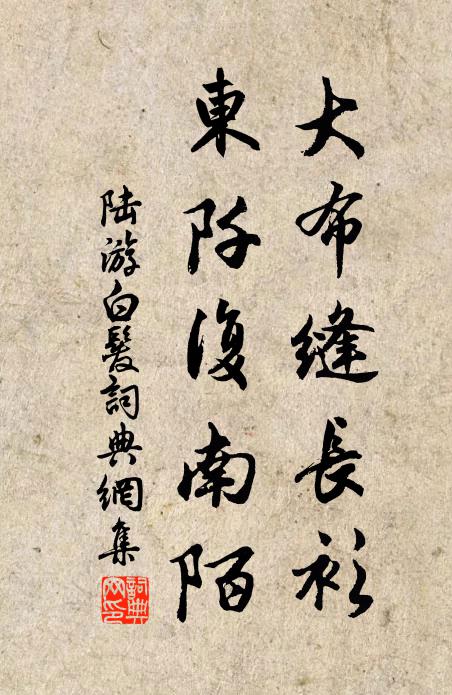 大布縫長衫
東阡復南陌
陆游白髮詞典網集
詞典网印